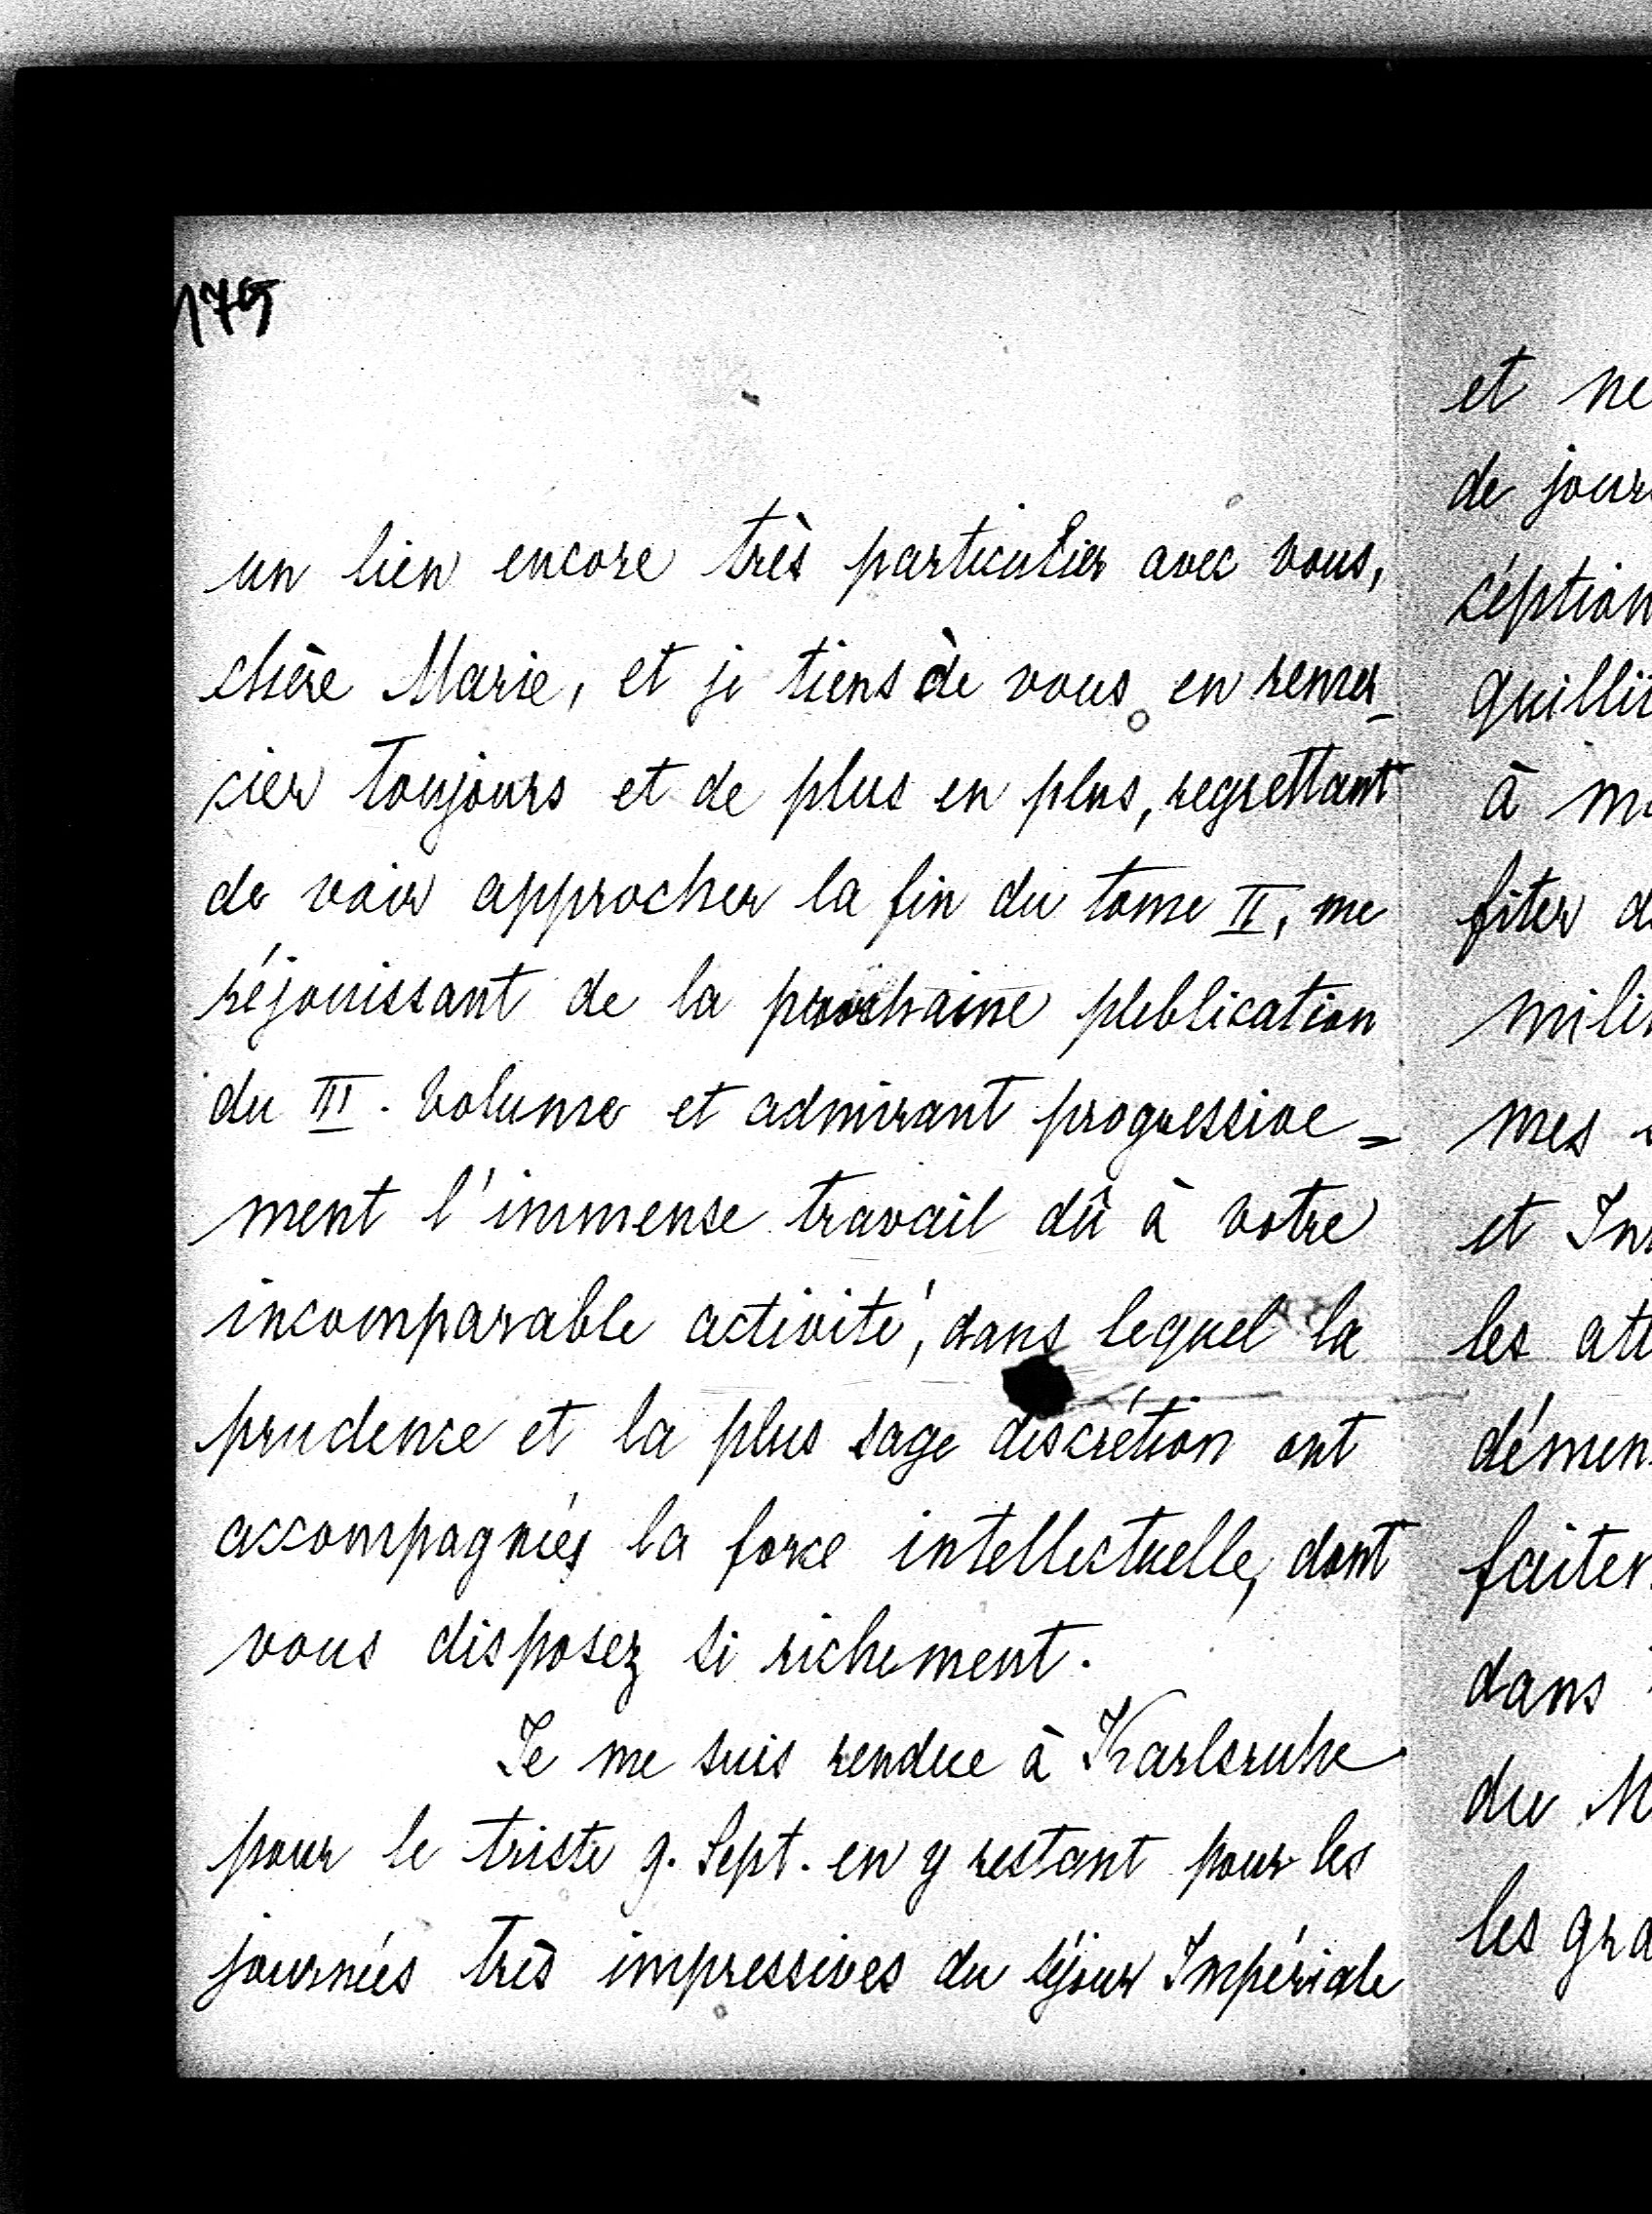 179
un lien encore très particulier avec vous,
chère Marie, et je tiens de vous en remer-
cier toujours et de plus en plus, regrettant
de voir approcher la fin du tome II, me
réjouissant de la prochaine publication
du III. volume et admirant progressive=
ment l'immense travail dû à votre
incomparable activité, dans lequel la
prudence et la plus sage discrétion ont
accompagnés la force intellectuelle, dont
vous disposez si richement.
Je me suis rendue à Karlsruhe
pour le triste 9. Sept. en y restant pour les
journées très impressives du séjour Impériale
et ne
de jour
séption
quillit
à m
fiter d
milit
mes s
et In
les att
démen
faiter
dans
du M
les gra